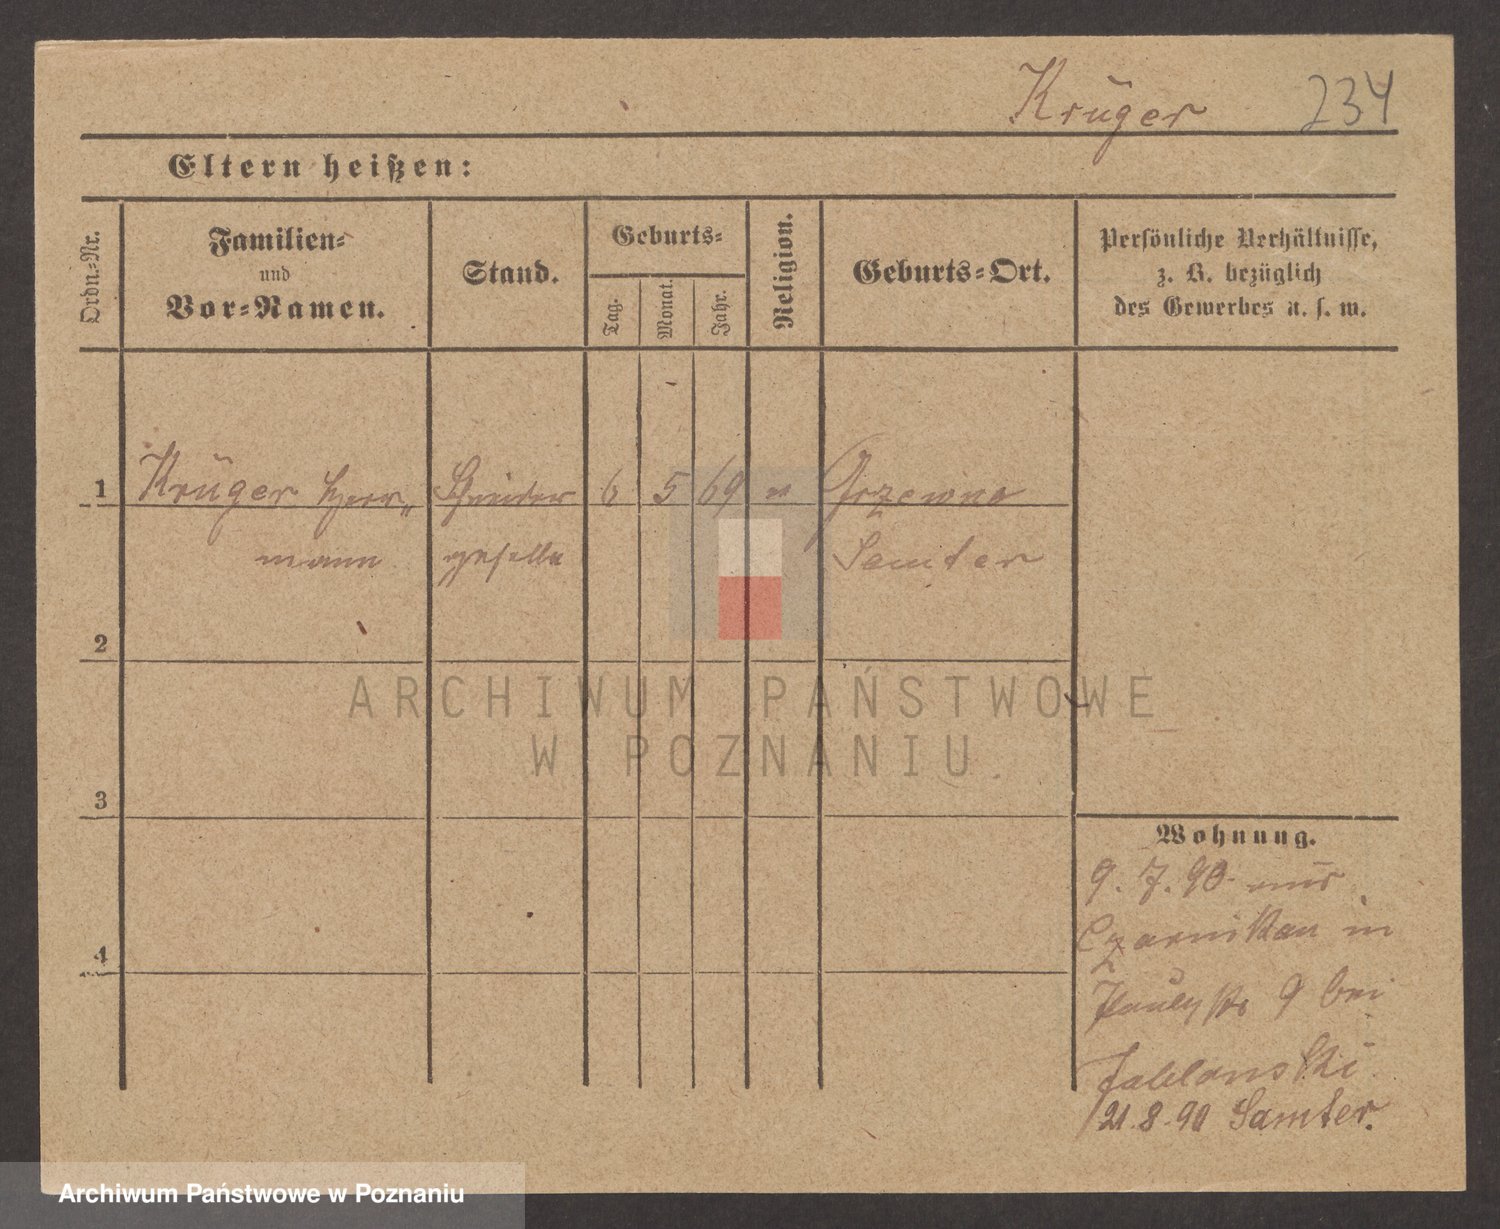 Krüger 234
Eltern heißen:
Ordn.-Nr.
Familien-
und
Vor-Namen.
Stand.
Geburts-
Tag.
Monat.
Jahr.
Religion.
Geburts-Ort.
Persönliche Verhältnisse,
z. B. bezüglich
des Gewerbes u. s. w.
1 Krüger Herr„ Schneider 6 5 69 Grzewno
mann geselle Samter
2
3
4
Wohnung.
9. 7. 90 aus
Czarnikau in
9 bei
Jablonski
21.8.90 Samter.
ARCHIWUM PAŃSTWOWE
W POZNANIU
Archiwum Państwowe w Poznaniu